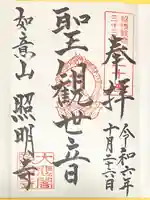 奉拝
令和六年
十月二十六日
聖観世音
如意山 照明寺